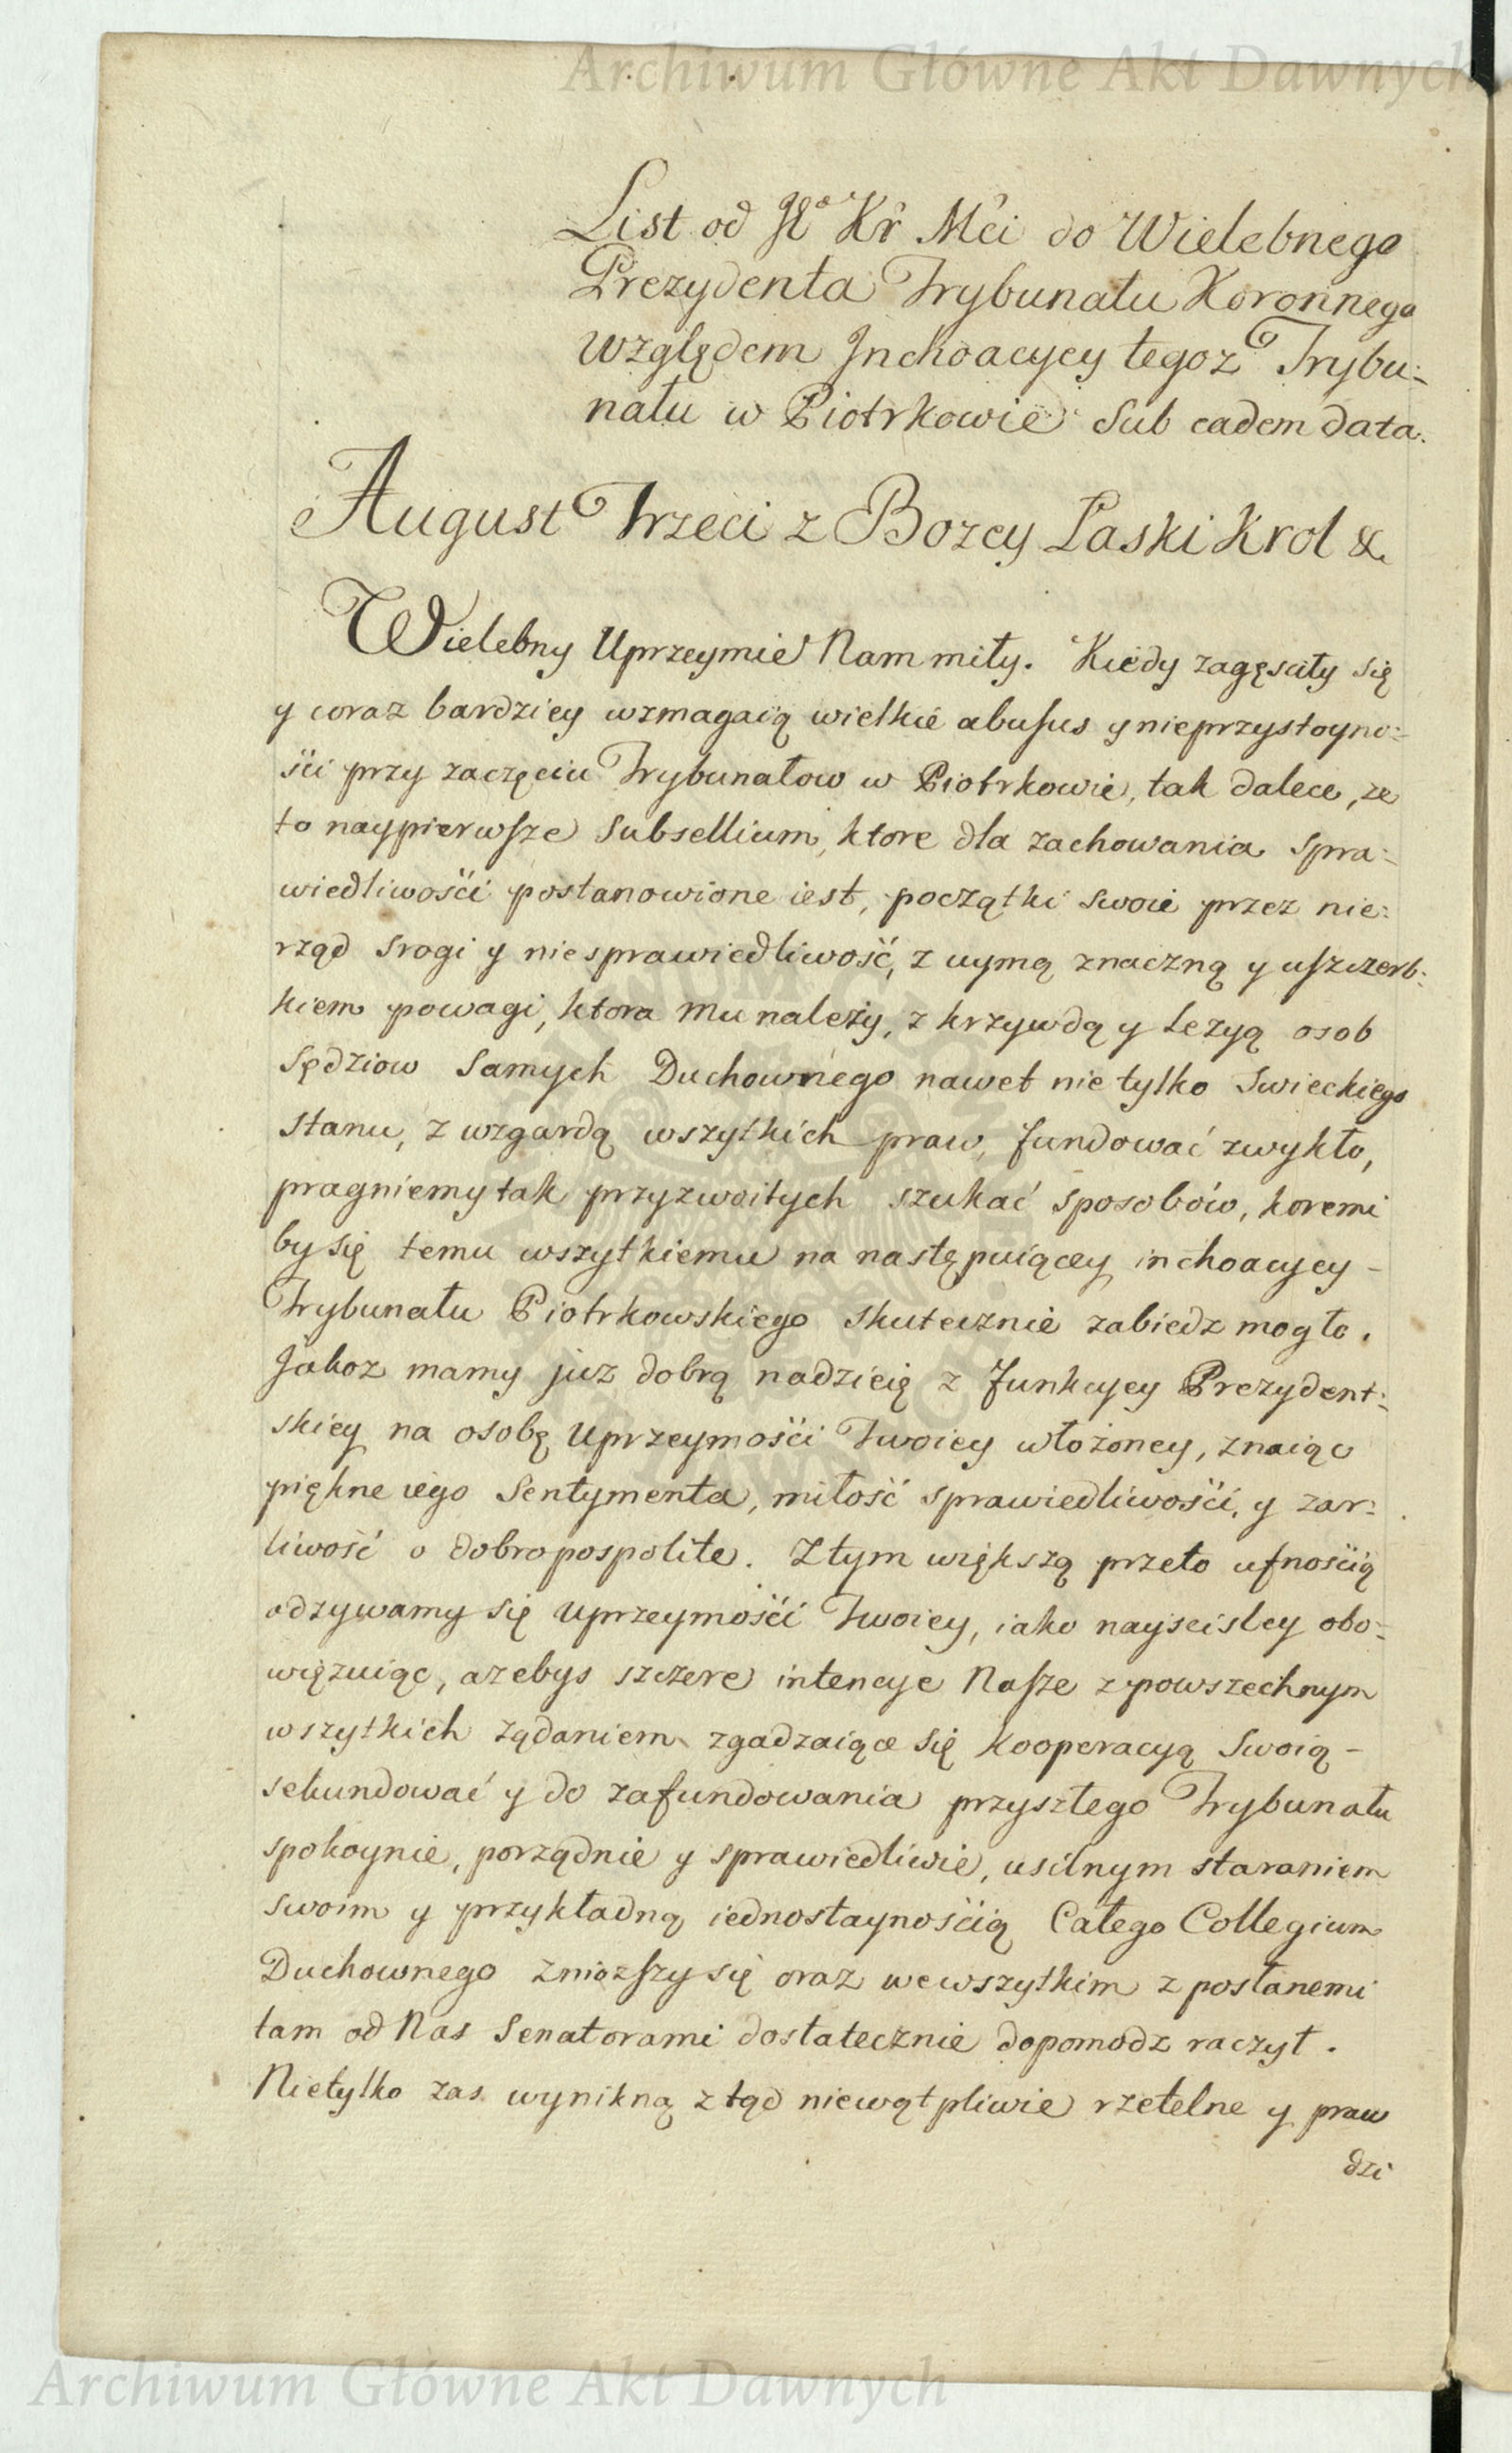 Archiwum Główne Akt Dawnych
List od Jᵒ Kr̂ Mĉi do Wielebnego
Prezydenta Trybunatu Koronnego
względem Inchoacycy tegoz Trybu:
natu w Piotrkowie sub eadem data.
August Trzeci z Bozey Łaski Krol &
Wielebny Uprzeymie Nam miły. Kiedy zagęsciły się
y coraz bardziey wzmagaią wielkie abusus y nieprzystoyno:
ści przy zaczęciu Trybunałow w Piotrkowie, tak dalece, ze
to naypierwsze Subsellium, ktore dla zachowania spra:
wiedliwości postanowione iest, początki swoie przez nie:
rząd srogi y niesprawiedliwość, z uymą znaczną y uszczerb:
kiem powagi, ktora mu należy, z krzywdą y lezyą osob
Sędziow samych Duchownego nawet nie tylko swieckiego
stanu, z wzgardą wszytkich praw, fundować zwykło,
pragniemy tak przyzwoitych szukać sposobów, koremi
by się temu wszytkiemu na następuiącey inchoacyey -
Trybunału Piotrkowskiego skutecznie zabiedz mogło.
Jakoz mamy juz dobrą nadzieię z Funkcyey Prezydent:
skiey na osobę Uprzeymości Twoiey włożoney, znaiąc
piękne iego Sentymenta, miłość sprawiedliwości, y zar:
liwość o dobro pospolite. Z tym większą przeto ufnością
odzywamy się Uprzeymości Twoiey, iako nayscisley obo:
więzuiąc, azebys szczere intencye Nasze z powszechnym
wszytkich żądaniem zgadzaiące się kooperacyą swoią -
sekundować y do zafundowania przyszłego Trybunału
spokoynie, porządnie y sprawiedliwie, usilnym staraniem
swoim y przykładną iednostaynością Całego Collegium
Duchownego zniozszy się oraz we wszytkim z posłanemi
tam od Nas Senatorami dostatecznie dopomodz raczył.
Nietylko zas wynikną ztąd niewątpliwie rzetelne y praw
dzi
Archiwum Główne Akt Dawnych